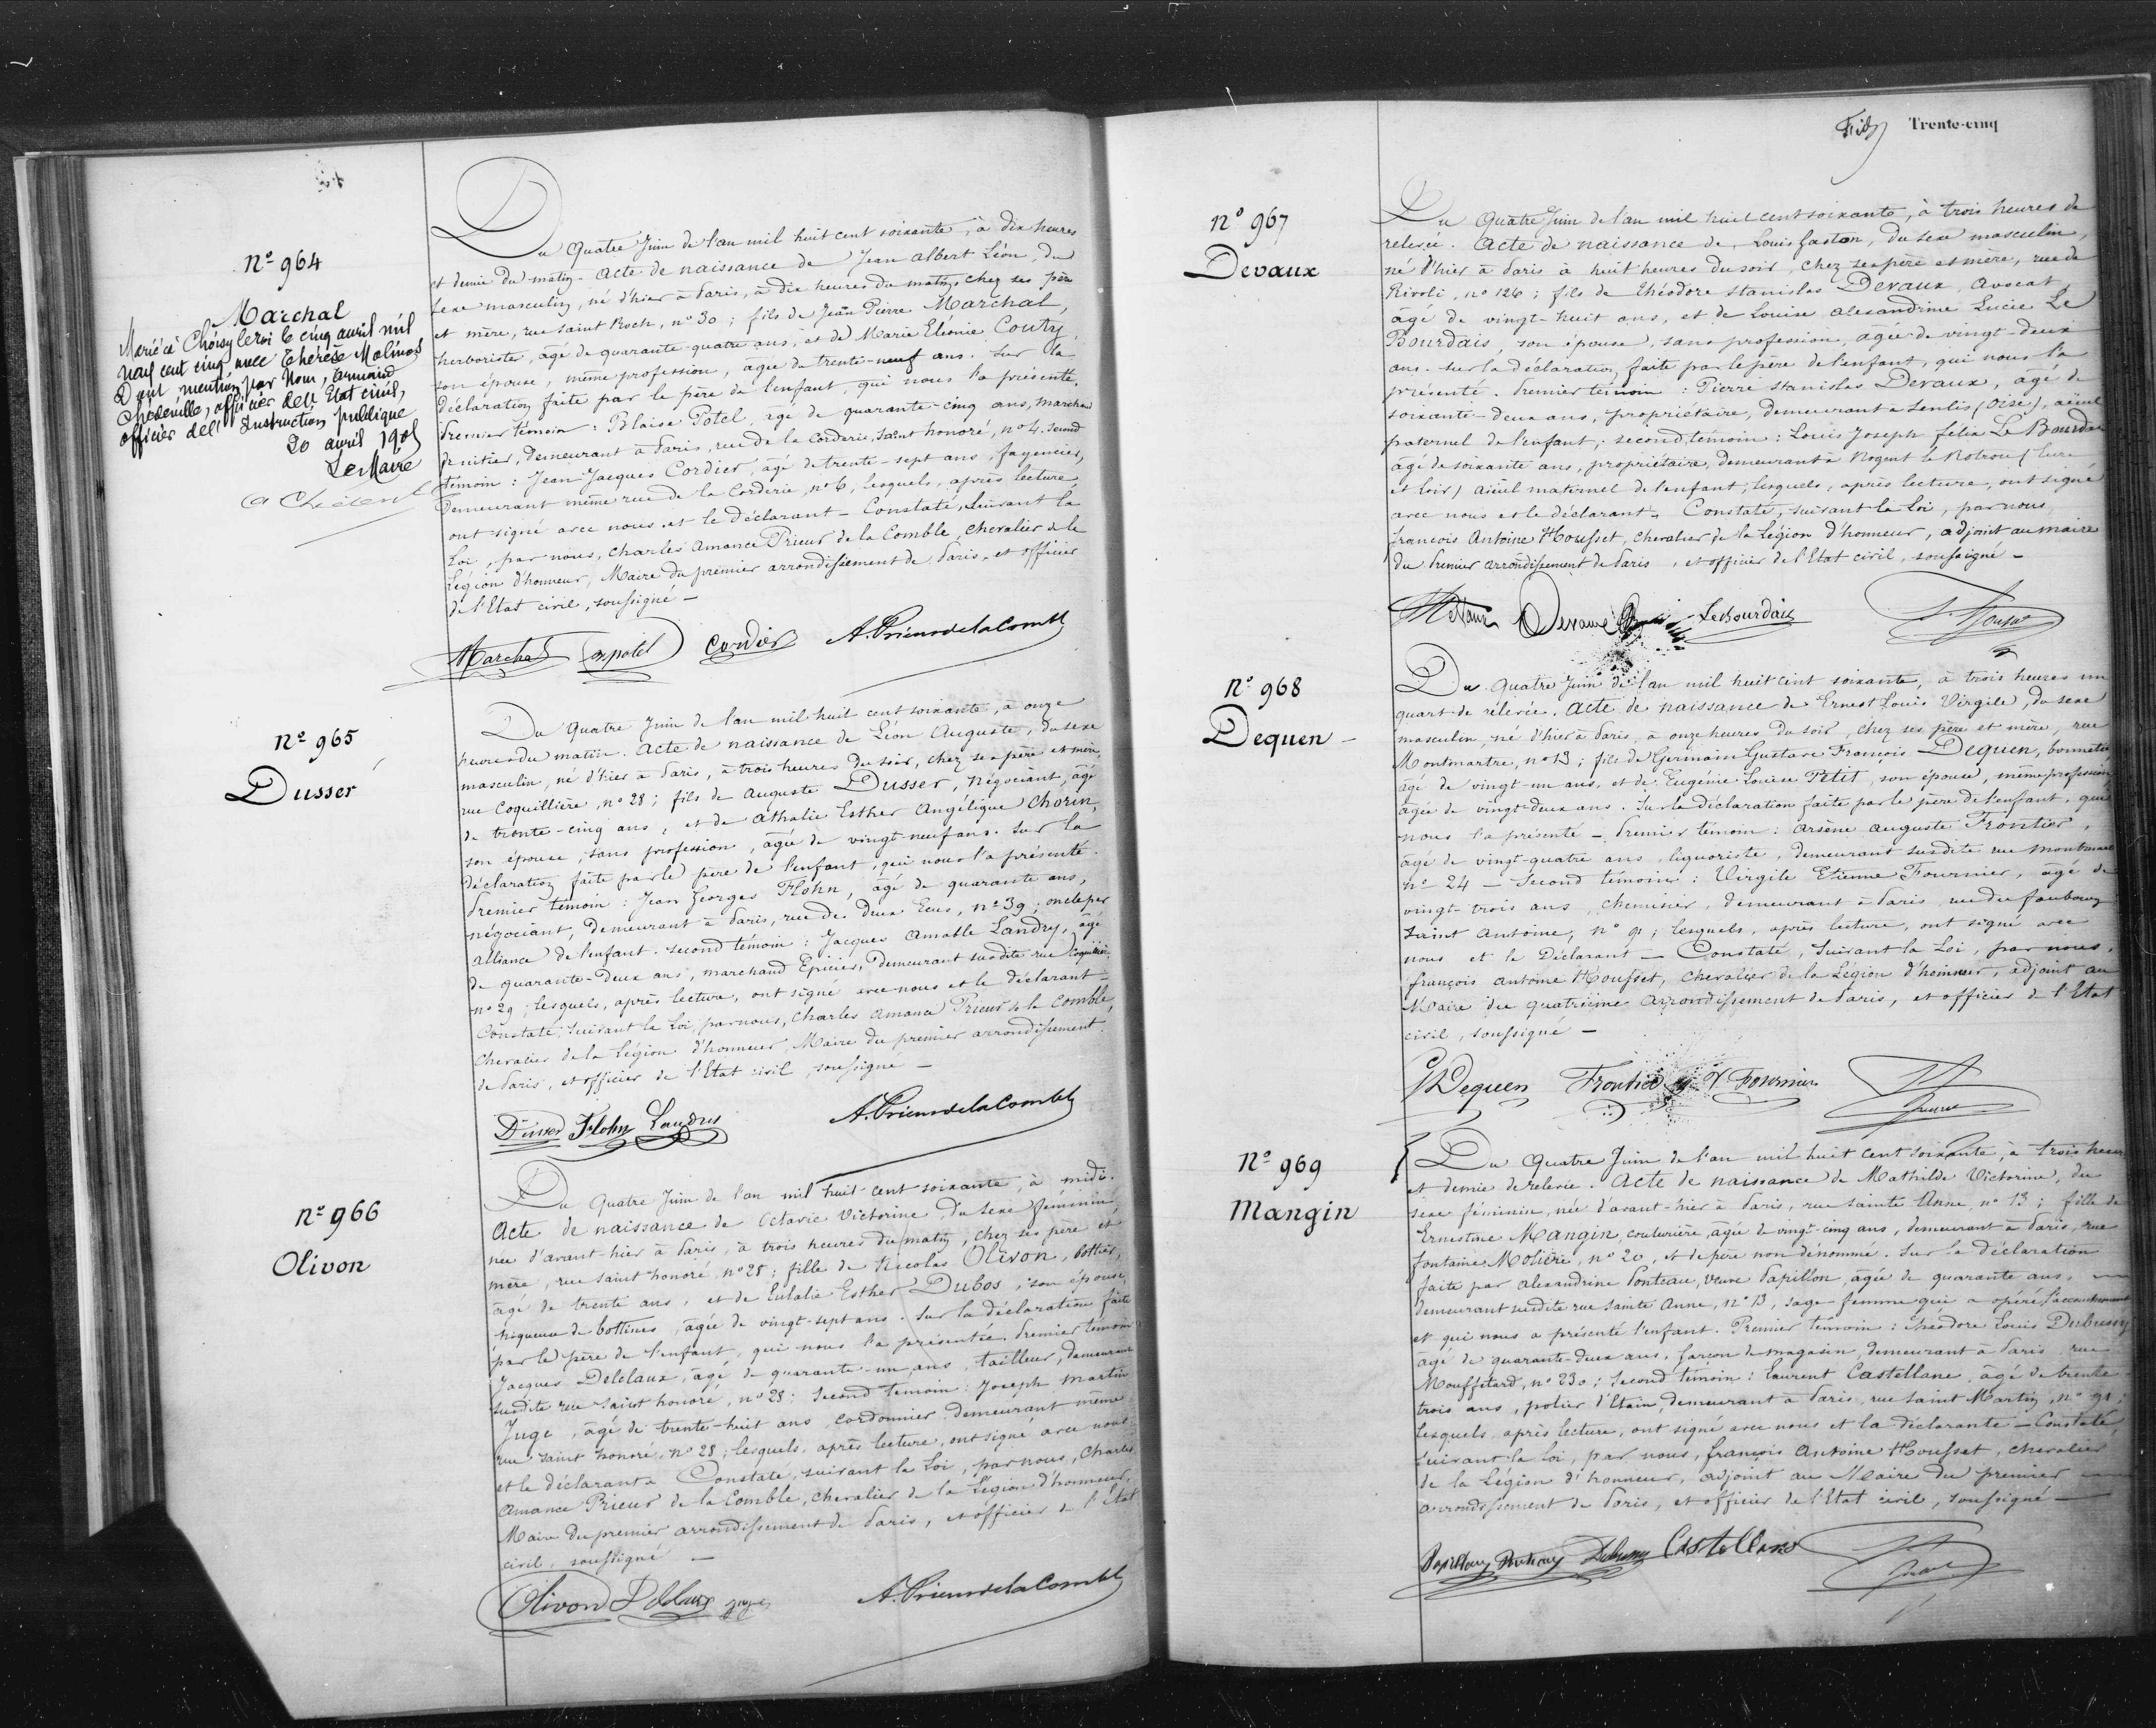 Nº 964
Marchal
Marié à Choisy le roi le cinq avril mil
neuf cent cinq avec Thérèse Molinos
Dont mention par Nous, Armand
officier de l'Etat civil,
officier de l'Instruction publique
20 avril 1905
Le Maire
Du Quatre Juin de l'an mil huit cent soixante, à dix heures
et demie du matin. Acte de naissance de Jean albert Léon, du
sexe masculin, né d'hier à Paris, à dix heures du matin, chez ses père
et mère, rue saint Roch, nº 30; fils de Jean Pierre Marchal,
herboriste, âgé de quarante-quatre ans, et de Marie Eléonie Couty,
son épouse, même profession, âgée de trente-neuf ans. Sur la
déclaration faite par le père de l'enfant qui nous l'a présenté.
Premier témoin: Blaise Potel, âgé de quarante-cinq ans, marchand
fruitier, demeurant à Paris, rue de la Corderie Saint honoré, nº 4. Second
témoin: Jean Jacques Cordier, âgé de trente-sept ans, fayencier,
demeurant même rue de la Corderie, nº 6, lesquels, après lecture,
ont signé avec nous et le déclarant - Constaté, suivant la
Loi, par nous, Charles Amance Prieur de la Comble, chevalier de la
Légion d'honneur, Maire du premier arrondissement de Paris, et officier
de l'Etat civil, soussigné -
Marchal potel Cordier A. Prieur de la Comble
Nº 965
Dusser
Du Quatre Juin de l'an mil huit cent soixante, à onze
heures du matin. Acte de naissance de Léon Auguste, du sexe
masculin, né d'hier à Paris, à trois heures du soir, chez ses père et mère,
rue Coquillière, nº 28; fils de Auguste Dusser, négociant, âgé
de trente-cinq ans, et de Athalie Esther Angélique Chorin,
son épouse, sans profession, âgée de vingt-neuf ans. Sur la
déclaration faite par le père de l'enfant, qui nous l'a présenté.
Premier témoin: Jean Georges Flohn, âgé de quarante ans,
négociant, demeurant à Paris, rue des Deux Ecus, nº 39; oncle par
alliance de l'enfant. Second témoin: Jacques Amable Landry, âgé
de quarante-deux ans, marchand Epicier, demeurant susdite rue Coquillière,
nº 29; lesquels, après lecture, ont signé avec nous et le déclarant -
Constaté, suivant la Loi, par nous, Charles Amance Prieur de la Comble,
Chevalier de la Légion d'honneur, Maire du premier arrondissement
de Paris, et officier de l'Etat civil, soussigné -
Dusser Flohn Landry A. Prieur de la Comble
Nº 966
Olivon
Du Quatre Juin de l'an mil huit cent soixante, à midi.
Acte de naissance de Octavie Victorine, du sexe féminin,
née d'avant-hier à Paris, à trois heures du matin, chez ses père et
mère, rue saint honoré, nº 28; fille de Nicolas Olivon, bottier,
âgé de trente ans, et de Eulalie Esther Dubos, son épouse,
piqueuse de bottines, âgée de vingt-sept ans. Sur la déclaration faite
par le père de l'enfant, qui nous l'a présentée. Premier témoin
Jacques Delclaux, âgé de quarante-un ans, tailleur, demeurant
susdite rue Saint honoré, nº 28; second témoin: Joseph Martin
Juge, âgé de trente-huit ans, cordonnier, demeurant même
rue saint honoré, nº 28; lesquels, après lecture, ont signé avec nous
et le déclarant - Constaté, suivant la Loi, par nous, Charles
Amance Prieur de la Comble, chevalier de la Légion d'honneur,
Maire du premier arrondissement de Paris, et officier de l'Etat
civil, soussigné -
Olivon Delclaux juge A. Prieur de la Comble
Trente-cinq
nº 967
Devaux
Du Quatre Juin de l'an mil huit cent soixante, à trois heures de
relevée. Acte de naissance de Louis Gaston, du sexe masculin,
né d'hier à Paris à huit heures du soir, chez ses père et mère, rue de
Rivoli, nº 126; fils de Théodore Stanislas Devaux, avocat,
âgé de vingt-huit ans, et de Louise Alexandrine Lucie Le
Bourdais, son épouse, sans profession, âgée de vingt-deux
ans. Sur la déclaration faite par le père de l'enfant, qui nous l'a
présenté. Premier témoin: Pierre Stanislas Devaux, âgé de
soixante-deux ans, propriétaire, demeurant à Senlis (Oise), aïeul
paternel de l'enfant; second témoin: Louis Joseph félix Le Bourdais
âgé de soixante ans, propriétaire, demeurant à Nogent le Rotrou (Eure
et Loir) aïeul maternel de l'enfant; lesquels, après lecture, ont signé
avec nous et le déclarant. Constaté, suivant la Loi, par nous,
françois Antoine Housset, chevalier de la Légion d'honneur, adjoint au maire
du Premier arrondissement de Paris, et officier de l'Etat civil, soussigné -
Devaux LeBourdais
Nº 968
Dequen -
Du Quatre Juin de l'an mil huit cent soixante, à trois heures un
quart de relevée. Acte de naissance de Ernest Louis Virgile, du sexe
masculin, né d'hier à Paris, à onze heures du soir, chez ses père et mère, rue
Montmartre, nº 13; fils de Germain Gustave François Dequen, bonnetier
âgé de vingt-un ans, et de Eugénie Louise Petit, son épouse, même profession
âgée de vingt-deux ans. Sur la déclaration faite par le père de l'enfant, qui
nous l'a présenté - Premier témoin: Arsène Auguste Frontier,
âgé de vingt-quatre ans, liquoriste, demeurant susdite rue Montmartre
nº 24 - Second témoin: Virgile Etienne Fournier, âgé de
vingt-trois ans, chemisier, demeurant à Paris, rue du faubourg
Saint Antoine, nº 91; lesquels, après lecture, ont signé avec
nous et le Déclarant - Constaté, suivant la Loi, par nous,
françois antoine Housset, chevalier de la Légion d'honneur, adjoint au
Maire du quatrième arrondissement de Paris, et officier de l'Etat
civil, soussigné -
Dequen Frontier V Fournier
Nº 969
Mangin
Du Quatre Juin de l'an mil huit cent soixante, à trois heures
et demie de relevée. Acte de naissance de Mathilde Victorine, du
sexe féminin, née d'avant-hier à Paris, rue sainte Anne, nº 13; fille de
Ernestine Mangin, couturière, âgée de vingt-cinq ans, demeurant à Paris, rue
fontaine Molière, nº 20, et de père non dénommé. Sur la déclaration
faite par Alexandrine Ponteau, veuve Papillon, âgée de quarante ans,
demeurant susdite rue Sainte Anne, nº 13, sage-femme qui a opéré l'accouchement
et qui nous a présenté l'enfant. Premier témoin: Théodore Louis Debussy
âgé de quarante-deux ans, garçon de magasin, demeurant à Paris, rue
Mouffetard, nº 230; Second témoin: Laurent Castellano, âgé de trente
trois ans, potier d'Etain, demeurant à Paris, rue Saint Martin, nº 91;
lesquels, après lecture, ont signé avec nous et la déclarante - Constaté,
suivant la Loi, par nous, françois Antoine Housset, chevalier
de la Légion d'honneur, adjoint au Maire du premier
arrondissement de Paris, et officier de l'Etat civil, soussigné -
Debussy Castellano